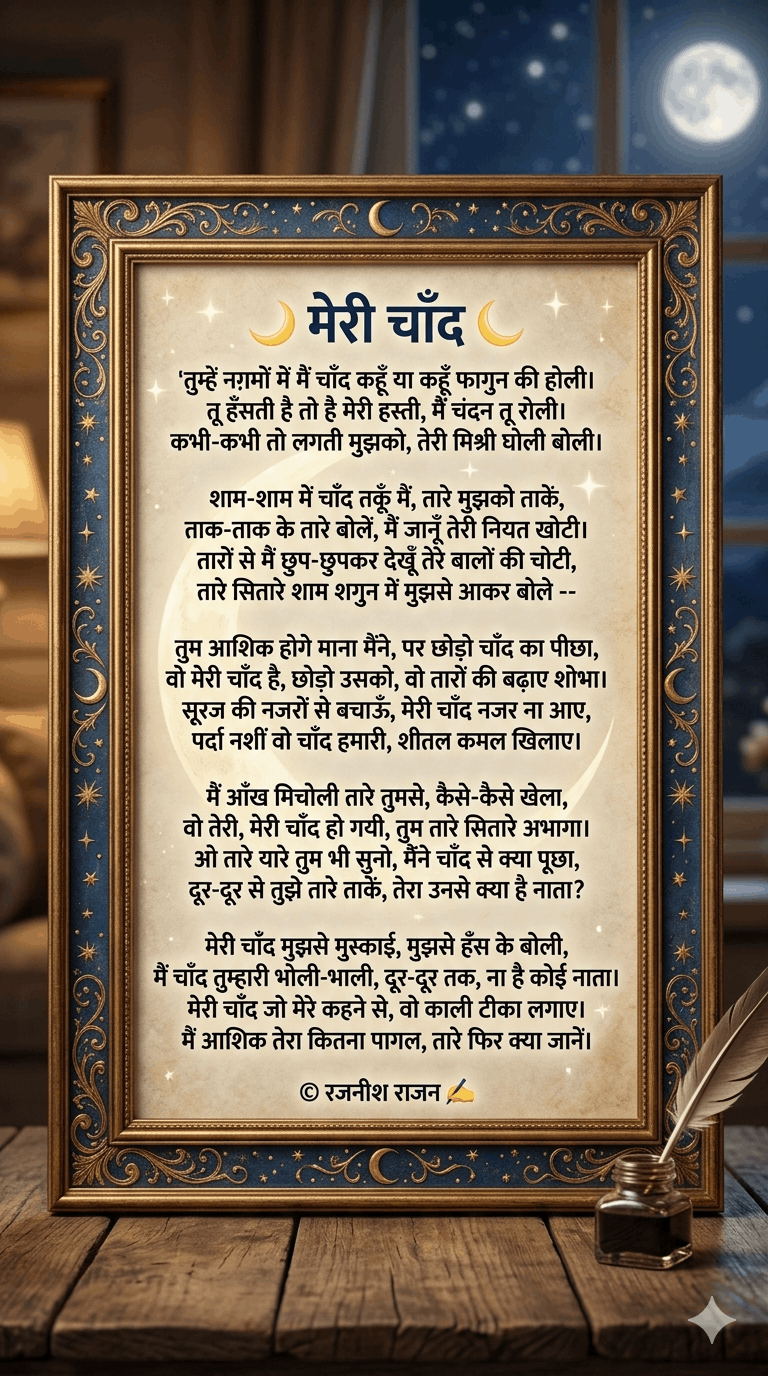 🌙 मेरी चाँद 🌙
‘तुम्हें नग़मों में मैं चाँद कहूँ या कहूँ फागुन की होली।
तू हँसती है तो है मेरी हस्ती, मैं चंदन तू रोली।
कभी-कभी तो लगती मुझको, तेरी मिश्री घोली बोली।
शाम-शाम में चाँद तकूँ मैं, तारे मुझको ताकें,
ताक-ताक के तारे बोलें, मैं जानूँ तेरी नियत खोटी।
तारों से मैं छुप-छुपकर देखूँ तेरे बालों की चोटी,
तारे सितारे शाम शगुन में मुझसे आकर बोले --
तुम आशिक होगे माना मैंने, पर छोड़ो चाँद का पीछा,
वो मेरी चाँद है, छोड़ो उसको, वो तारों की बढ़ाए शोभा।
सूरज की नजरों से बचाऊँ, मेरी चाँद नजर ना आए,
पर्दा नशीं वो चाँद हमारी, शीतल कमल खिलाए।
मैं आँख मिचोली तारे तुमसे, कैसे-कैसे खेला,
वो तेरी, मेरी चाँद हो गयी, तुम तारे सितारे अभागा।
ओ तारे यारे तुम भी सुनो, मैंने चाँद से क्या पूछा,
दूर-दूर से तुझे तारे ताकें, तेरा उनसे क्या है नाता?
मेरी चाँद मुझसे मुस्काई, मुझसे हँस के बोली,
मैं चाँद तुम्हारी भोली-भाली, दूर-दूर तक, ना है कोई नाता।
मेरी चाँद जो मेरे कहने से, वो काली टीका लगाए।
मैं आशिक तेरा कितना पागल, तारे फिर क्या जानें।
© रजनीश राजन ✍️